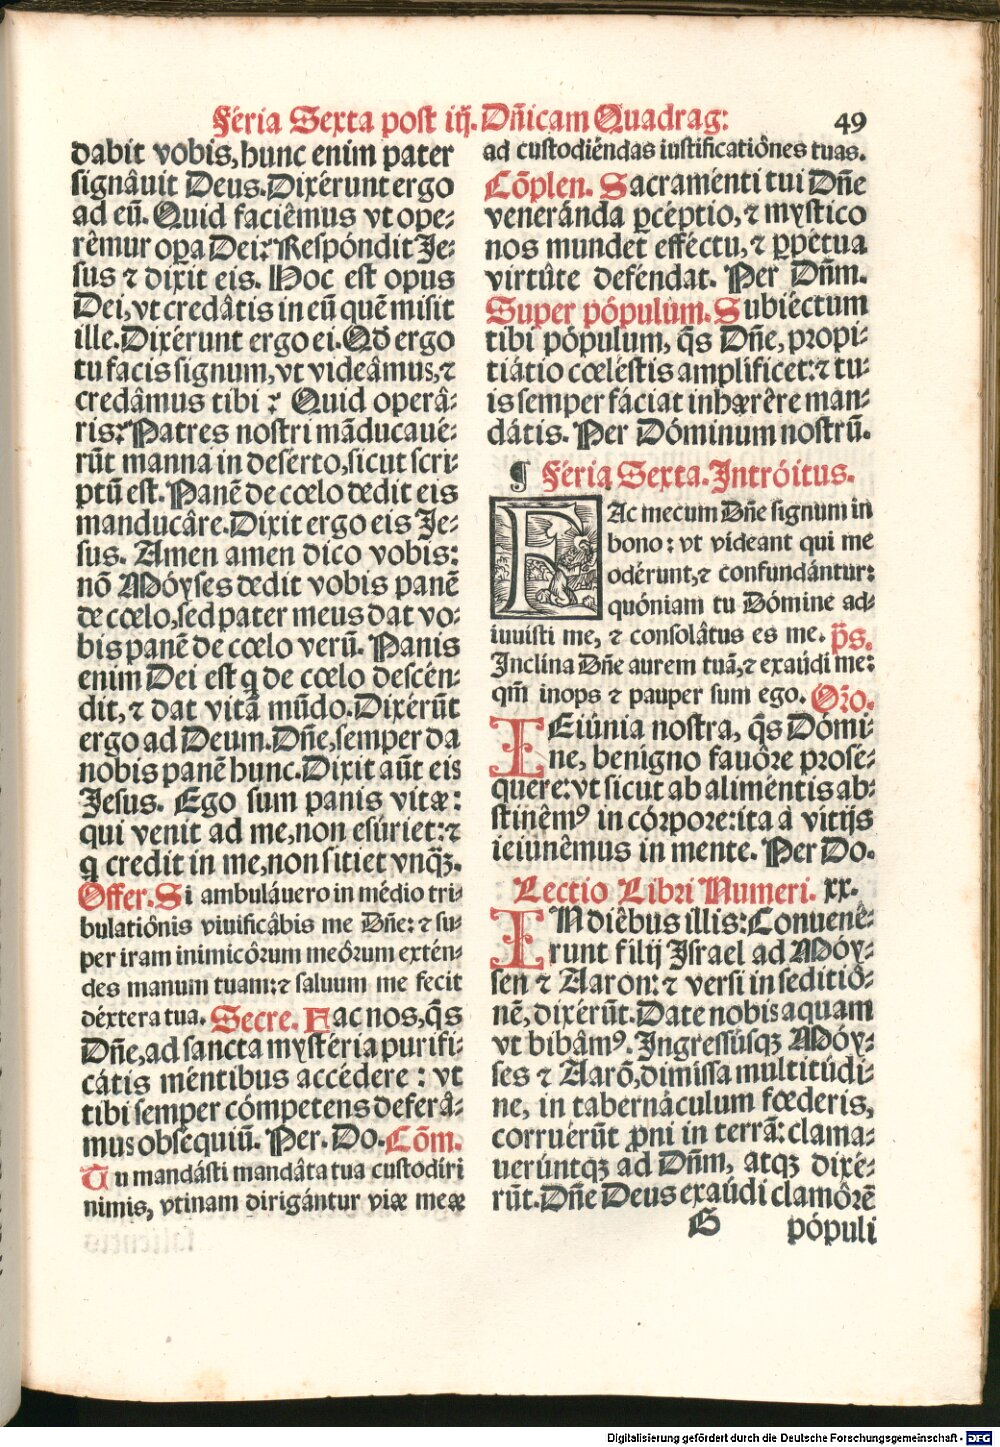 Féria Sexta post iij. Dñicam Quadrag: 49
dabit vobis, hunc enim pater
signâuit Deus. Dixérunt ergo
ad eũ. Quid faciêmus vt ope-
rêmur oꝑa Dei? Respóndit Je-
sus ⁊ dixit eis. Hoc est opus
Dei, vt credâtis in eũ quẽ misit
ille. Dixérunt ergo ei. Qđ ergo
tu facis signum, vt videâmus, ⁊
credâmus tibi? Quid operâ-
ris? Patres nostri mãducaué-
rũt manna in desérto, sicut scri-
ptũ est. Panẽ de cœlo dedit eis
manducâre. Dixit ergo eis Je-
sus. Amen amen dico vobis:
nõ Móyses dedit vobis panẽ
de cœlo, sed pater meus dat vo-
bis panẽ de cœlo verũ. Panis
enim Dei est q̃ de cœlo descén-
dit, ⁊ dat vitã mũdo. Dixérũt
ergo ad Deum. Dñe, semper da
nobis panẽ hunc. Dixit aũt eis
Jesus. Ego sum panis vitæ:
qui venit ad me, non esúriet: ⁊
q̃ credit in me, non sitiet vnq̃ꝫ.
Offer. Si ambuláuero in médio tri-
bulatiônis viuificâbis me Dñe: ⁊ su-
per iram inimicôrum meôrum extén-
des manum tuam: ⁊ saluum me fecit
déxtera tua. Secre. Fac nos, q̃s
Dñe, ad sancta mystéria purifi-
cátis méntibus accédere: vt
tibi semper cómpetens deferâ-
mus obséquiũ. Per. Do. Cõm.
Tu mandásti mandâta tua custodíri
nimis, vtinam dirigántur viæ meæ
ad custodiéndas iustificatiônes tuas.
Cõplen. Sacraménti tui Dñe
veneránda ꝑcéptio, ⁊ mystico
nos mundet efféctu, ⁊ ꝑpétua
virtûte deféndat. Per Dñm.
Super pópulum. Subiéctum
tibi pópulum, q̃s Dñe, propi-
tiátio cœléstis amplíficet: ⁊ tu-
is semper fáciat inhærêre man-
dátis. Per Dóminum nostrũ.
¶ Féria Sexta. Intróitus.
FAc mecum Dñe signum in
bono: vt videant qui me
odérunt, ⁊ confundántur:
quóniam tu Dómine ad-
iuuísti me, ⁊ consolâtus es me. p̃s.
Inclína Dñe aurem tuã, ⁊ exaúdi me:
qm̃ inops ⁊ pauper sum ego. Orõ.
IEiúnia nostra, q̃s Dómi-
ne, benígno fauôre prosé-
quere: vt sicut ab aliméntis ab-
stinêmꝰ in córpore: ita à vitijs
ieiunêmus in mente. Per Do.
Lectio Libri Numeri. xx.
IN diêbus illis: Conuenê-
runt filij Israel ad Móy-
sen ⁊ Aaron: ⁊ versi in seditiô-
nẽ, dixérũt. Date nobis aquam
vt bibâmꝰ. Ingressúsqꝫ Móy-
ses ⁊ Aarõ, dimissa multitúdi-
ne, in tabernâculum fœderis,
corruérũt ꝓni in terrã: clama-
uerúntqꝫ ad Dñm, atqꝫ dixé-
rũt. Dñe Deus exaúdi clamôrẽ
G pópuli
Digitalisierung gefördert durch die Deutsche Forschungsgemeinschaft - DFG